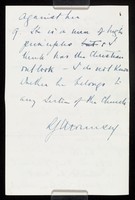 against him
9 He is a man of high
principles but or
think has the Christian
outlook - I do not know
whether he belongs to
any Section of the Church